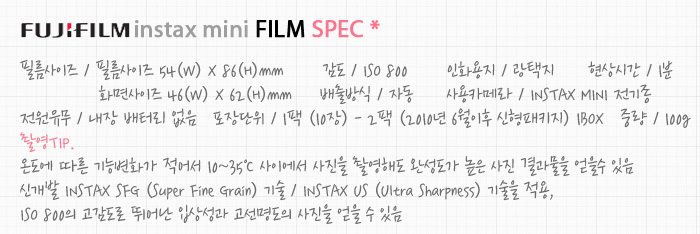 FUJIFILM instax mini FILM SPEC *
필름사이즈 / 필름사이즈 54(W) X 86(H)mm 감도 / ISO 800 인화용지 / 광택지 현상시간 / 1분
화면사이즈 46(W) X 62(H)mm 배출방식 / 자동 사용카메라 / INSTAX MINI 전기종
전원유무 / 내장 배터리 없음 포장단위 / 1팩 (10장) - 2팩 (2010년 6월이후 신형패키지) 1BOX 중량 / 100g
촬영TIP.
온도에 따른 기능변화가 적어서 10~35℃ 사이에서 사진을 촬영해도 완성도가 높은 사진 결과물을 얻을수 있음
신개발 INSTAX SFG (Super Fine Grain) 기술 / INSTAX US (Ultra Sharpness) 기술을 적용,
ISO 800의 고감도로 뛰어난 입상성과 고선명도의 사진을 얻을 수 있음